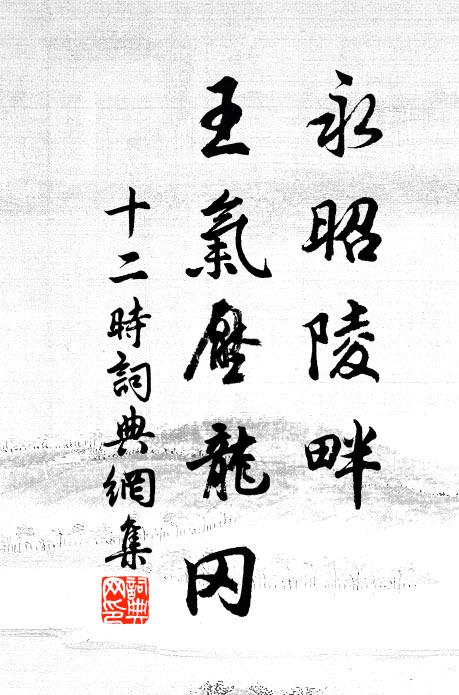 永昭陵畔
王氣壓龍冈
十二時詞典網集
詞典网印